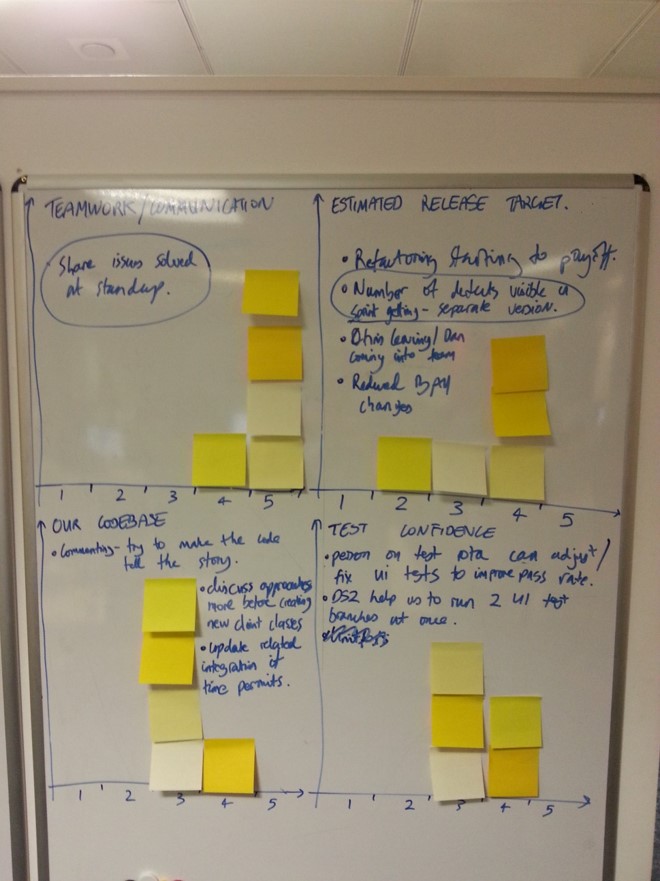 TEAMWORK/COMMUNICATION
Share issues solved
at standup.
1 2 3 4 5
ESTIMATED RELEASE TARGET.
• Refactoring starting to payoff.
• Number of defects visible in
sprint getting - separate version.
leaving/Dan
coming into team
• Reduced BAU
changes
1 2 3 4 5
OUR CODEBASE
• Commenting - try to make the code
tell the story.
• discuss approaches
more before creating
new client classes
• update related
integration if
time permits.
1 2 3 4 5
TEST CONFIDENCE
• person on test rota can adjust/
fix UI tests to improve pass rate.
• DS2 help us to run 2 UI test
branches at once.
1 2 3 4 5